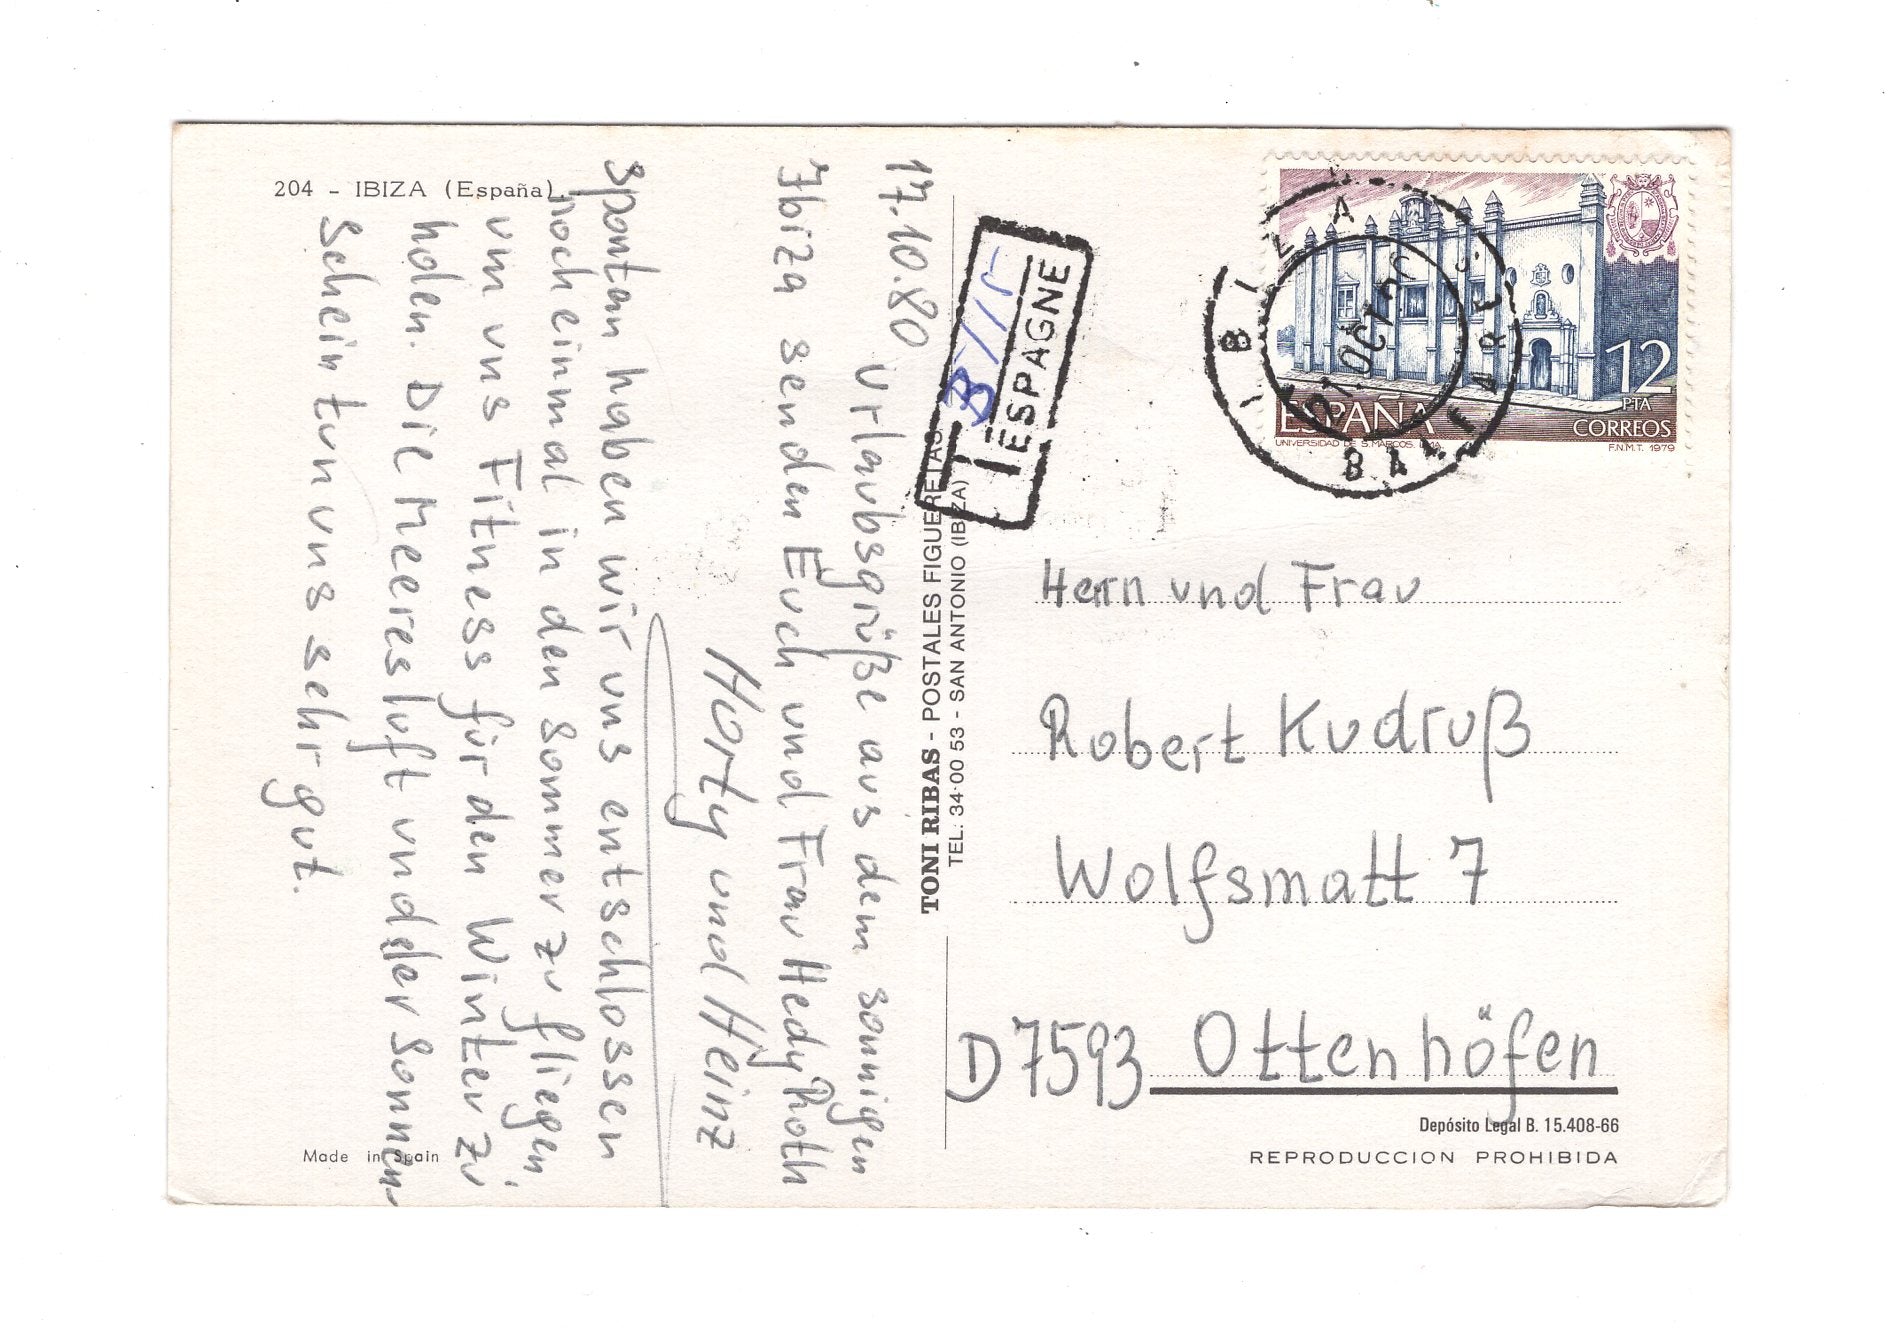 204 - IBIZA (España)
17.10.80
Urlaubsgrüße aus dem sonnigen
Ibiza senden Euch und Frau Hedy Roth
Horty und Heinz
Spontan haben wir uns entschlossen
noch einmal in den Sommer zu fliegen,
um uns Fitness für den Winter zu
holen. Die Meeresluft und der Sonnen-
schein tun uns sehr gut.
Made in Spain
TONI RIBAS - POSTALES FIGUERETAS
TEL. 34 00 53 - SAN ANTONIO (IBIZA)
T
ESPAGNE
IBIZA
BALEARES
ESPAÑA
12
PTA
CORREOS
UNIVERSIDAD DE S. MARCOS. LIMA
F.N.M.T. 1979
Herrn und Frau
Robert Kudruß
Wolfsmatt 7
D 7593 Ottenhöfen
Depósito Legal B. 15.408-66
REPRODUCCION PROHIBIDA